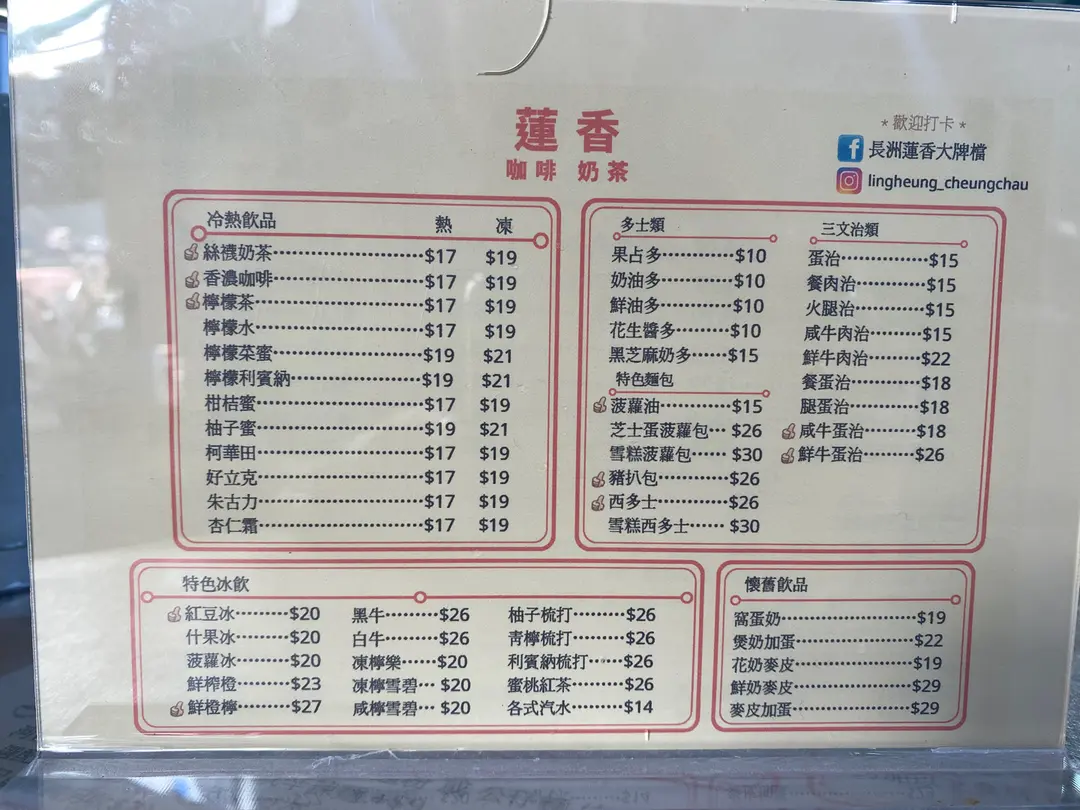 蓮香
咖啡 奶茶
*歡迎打卡*
長洲蓮香大牌檔
lingheung_cheungchau
冷熱飲品 熱 凍
絲襪奶茶 $17 $19
香濃咖啡 $17 $19
檸檬茶 $17 $19
檸檬水 $17 $19
檸檬菜蜜 $19 $21
檸檬利賓納 $19 $21
柑桔蜜 $17 $19
柚子蜜 $19 $21
柯華田 $17 $19
好立克 $17 $19
朱古力 $17 $19
杏仁霜 $17 $19
多士類
果占多 $10
奶油多 $10
鮮油多 $10
花生醬多 $10
黑芝麻奶多 $15
特色麵包
菠蘿油 $15
芝士蛋菠蘿包 $26
雪糕菠蘿包 $30
豬扒包 $26
西多士 $26
雪糕西多士 $30
三文治類
蛋治 $15
餐肉治 $15
火腿治 $15
咸牛肉治 $15
鮮牛肉治 $22
餐蛋治 $18
腿蛋治 $18
咸牛蛋治 $18
鮮牛蛋治 $26
特色冰飲
紅豆冰 $20
什果冰 $20
菠蘿冰 $20
鮮榨橙 $23
鮮橙檸 $27
黑牛 $26
白牛 $26
凍檸樂 $20
凍檸雪碧 $20
咸檸雪碧 $20
柚子梳打 $26
青檸梳打 $26
利賓納梳打 $26
蜜桃紅茶 $26
各式汽水 $14
懷舊飲品
窩蛋奶 $19
煲奶加蛋 $22
花奶麥皮 $19
鮮奶麥皮 $29
麥皮加蛋 $29